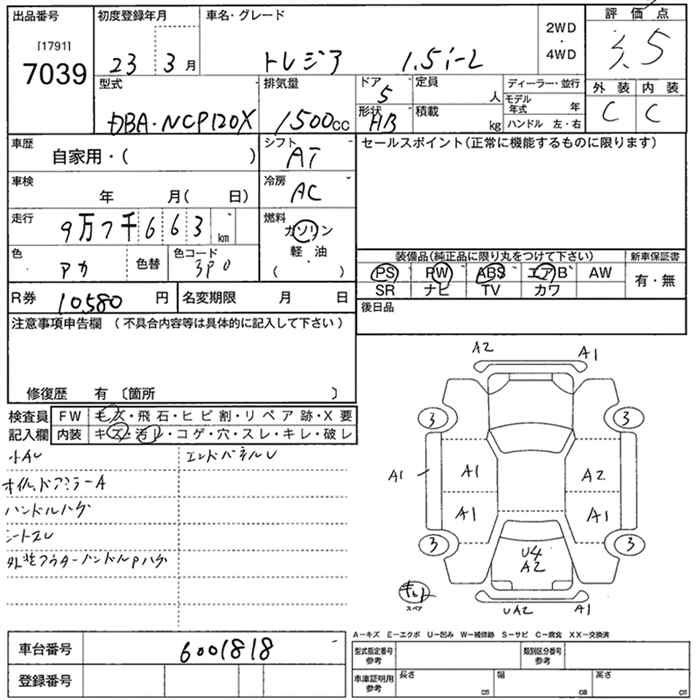 出品番号
[1791]
7039
初度登録年月
23 3月
車名・グレード
トレジア 1.5i-L
2WD
・
4WD
評価点
3.5
型式
DBA・NCP120X
排気量
1500cc
ドア
5
形状
HB
定員
人
積載
kg
ディーラー・並行
モデル年式 年
ハンドル 左・右
外装 内装
C C
車歴
自家用・( )
シフト
AT
セールスポイント(正常に機能するものに限ります)
車検
年 月( 日)
冷房
AC
走行
9万7千663km
燃料
ガソリン
・
軽油
( )
色
アカ
色替
色コード
3P0
装備品(純正品に限り丸をつけて下さい)
新車保証書
PS PW ABS エアB AW
有・無
SR ナビ TV カワ
R券 10,580 円
名変期限 月 日
後日品
注意事項申告欄 (不具合内容等は具体的に記入して下さい)
修復歴 有 〔箇所 〕
検査員
記入欄
FW キズ・飛石・ヒビ割・リペア跡・X要
内装 キズ・汚レ・コゲ・穴・スレ・キレ・破レ
小AU
エンドパネルU
ハンドルハゲ
外装アウターハンドルPハゲ
A2 A1
3 3
A1 A1 A2
A1 A1
3 3
U4
A2
スペア
UA2 A1
A-キズ E-エクボ U-凹み W-補修跡 S-サビ C-腐食 XX-交換済
車台番号
6001818
型式指定番号
参考
類別区分番号
参考
登録番号
車庫証明用
参考
長さ cm
幅 cm
高さ cm